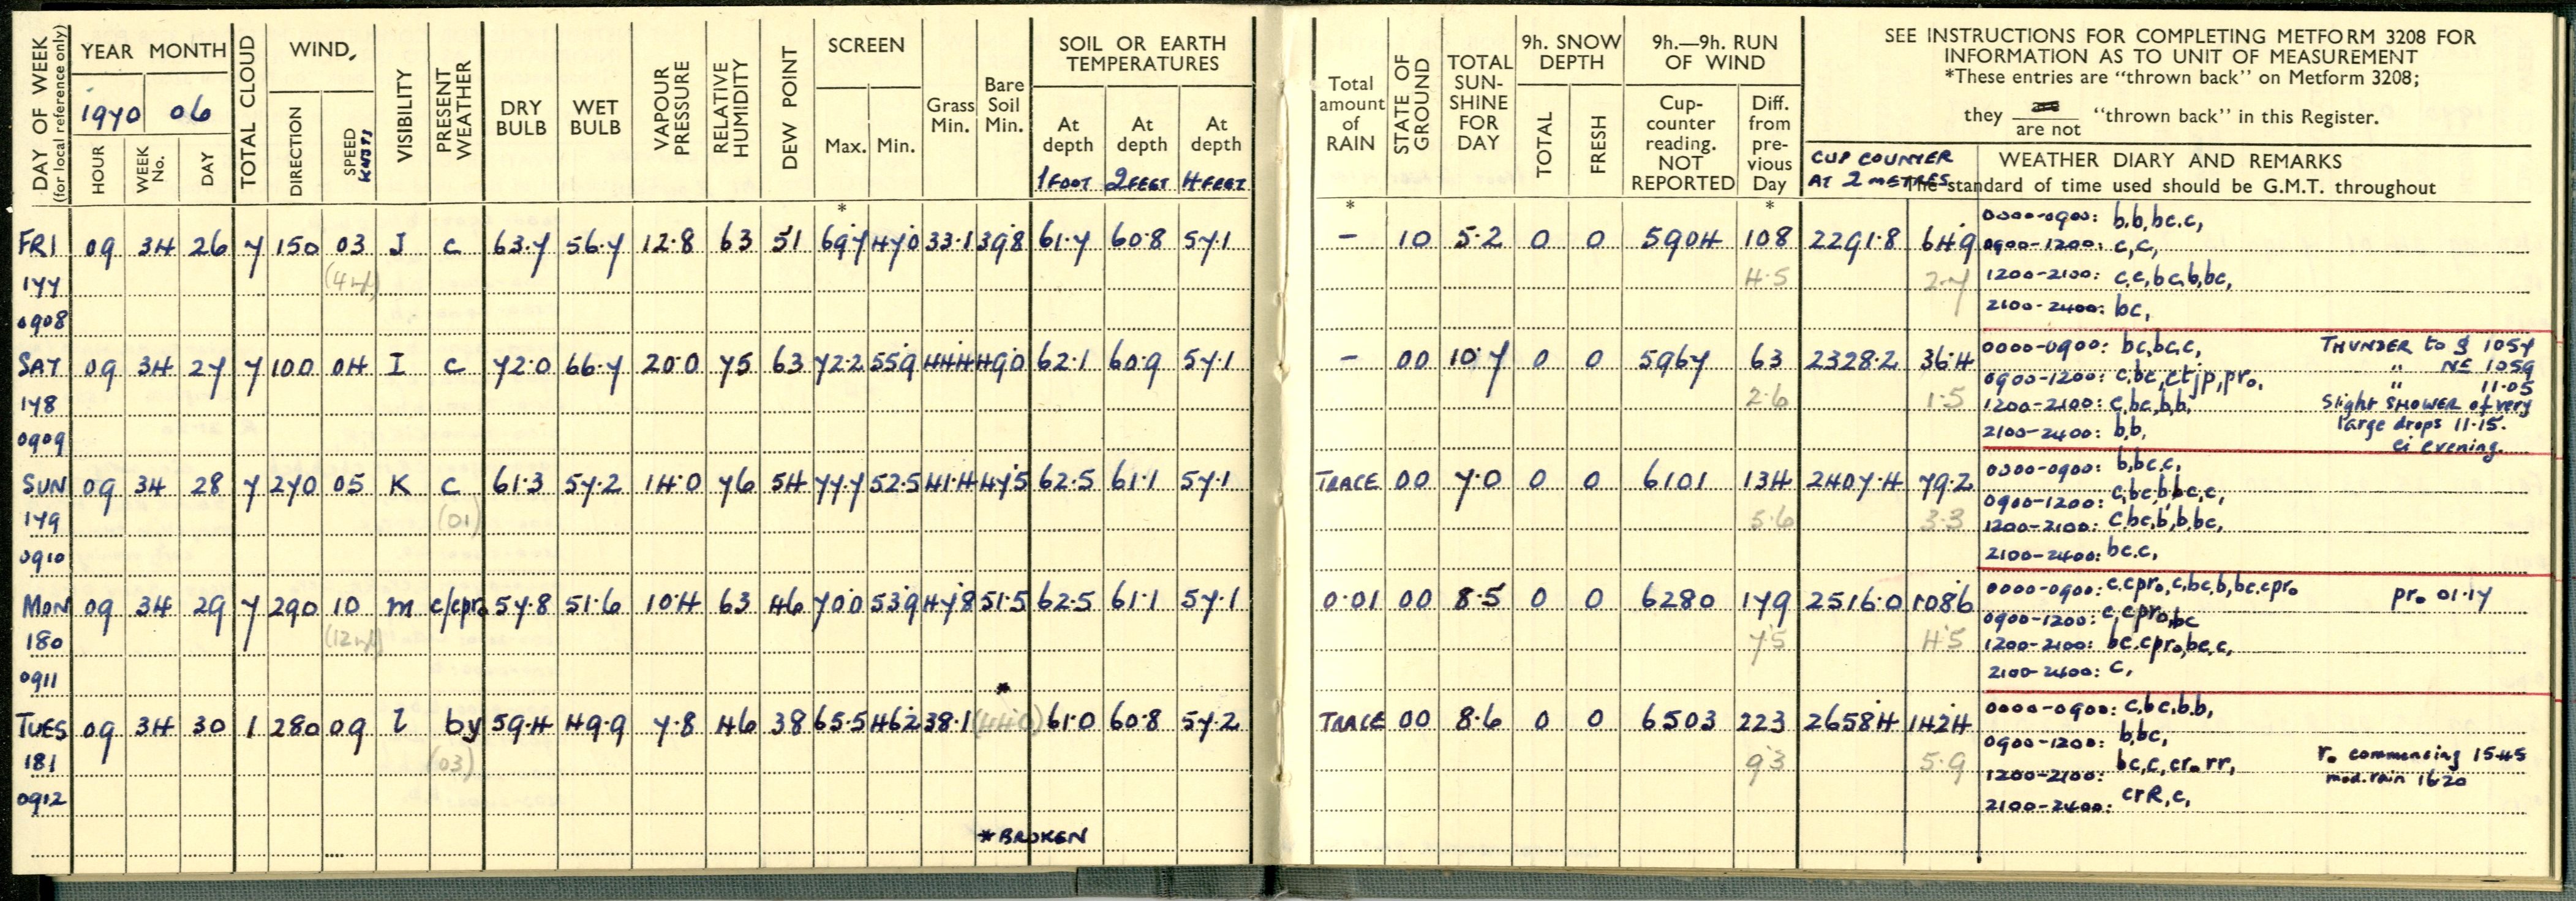 DAY OF WEEK
(for local reference only)
YEAR MONTH
1970 06
HOUR WEEK No. DAY
TOTAL CLOUD
WIND,
DIRECTION SPEED KNOTS
VISIBILITY
PRESENT WEATHER
DRY BULB
WET BULB
VAPOUR PRESSURE
RELATIVE HUMIDITY
DEW POINT
SCREEN
Max. Min.
Grass Min.
Bare Soil Min.
SOIL OR EARTH TEMPERATURES
At depth 1 FOOT
At depth 2 FEET
At depth 4 FEET
Total amount of RAIN
STATE OF GROUND
TOTAL SUN-SHINE FOR DAY
9h. SNOW DEPTH
TOTAL FRESH
9h.—9h. RUN OF WIND
Cup-counter reading. NOT REPORTED
Diff. from pre-vious Day
SEE INSTRUCTIONS FOR COMPLETING METFORM 3208 FOR
INFORMATION AS TO UNIT OF MEASUREMENT
*These entries are “thrown back” on Metform 3208;
they are are not “thrown back” in this Register.
CUP COUNTER AT 2 METRES
WEATHER DIARY AND REMARKS
The standard of time used should be G.M.T. throughout
* * *
FRI 09 34 26 7 150 03 J c 63.7 56.7 12.8 63 51 69.7 47.0 33.1 39.8 61.7 60.8 57.1 – 10 5.2 0 0 5904 108 2291.8 64.9
177 (4.5 2.7
0908
0000-0900: b,b,bc.c,
0900-1200: c,c,
1200-2100: c,c,bc,b,bc,
2100-2400: bc,
SAT 09 34 27 7 100 04 I c 72.0 66.7 20.0 75 63 72.2 55.9 44.4 49.0 62.1 60.9 57.1 – 00 10.7 0 0 5967 63 2328.2 36.4
178 2.6 1.5
0909
0000-0900: bc,bc,c,
0900-1200: c,bc,ctjp,pro,
1200-2100: c,bc,b,b,
2100-2400: b,b,
THUNDER to S 1057
" NE 1059
" 11.05
Slight SHOWER of very
large drops 11.15.
Ci evening.
SUN 09 34 28 7 270 05 K c 61.3 57.2 14.0 76 54 77.7 52.5 41.4 47.5 62.5 61.1 57.1 TRACE 00 7.0 0 0 6101 134 2407.4 79.2
179 (01) 5.6 3.3
0910
0000-0900: b,bc,c,
0900-1200: c,bc,b,bc,c,
1200-2100: c,bc,b,b,bc,
2100-2400: bc.c,
MON 09 34 29 7 290 10 m c/cpro 57.8 51.6 10.4 63 46 70.0 53.9 47.8 51.5 62.5 61.1 57.1 0.01 00 8.5 0 0 6280 179 2516.0 108.6
180 7.5 4.5
0911
0000-0900: c.cpro,c,bc,b,bc.cpro
0900-1200: c,cpro,bc
1200-2100: bc.cpro,bc,c,
2100-2400: c,
pro 01.17
*
TUES 09 34 30 1 280 09 l by 59.4 49.9 7.8 46 38 65.5 46.2 38.1 (44.0) 61.0 60.8 57.2 TRACE 00 8.6 0 0 6503 223 2658.4 142.4
181 (03) 9.3 5.9
0912
0000-0900: c,bc,b,b,
0900-1200: b,bc,
1200-2100: bc,c,cro,rr,
2100-2400: crR,c,
ro commencing 1545
mod.rain 1620
*BROKEN